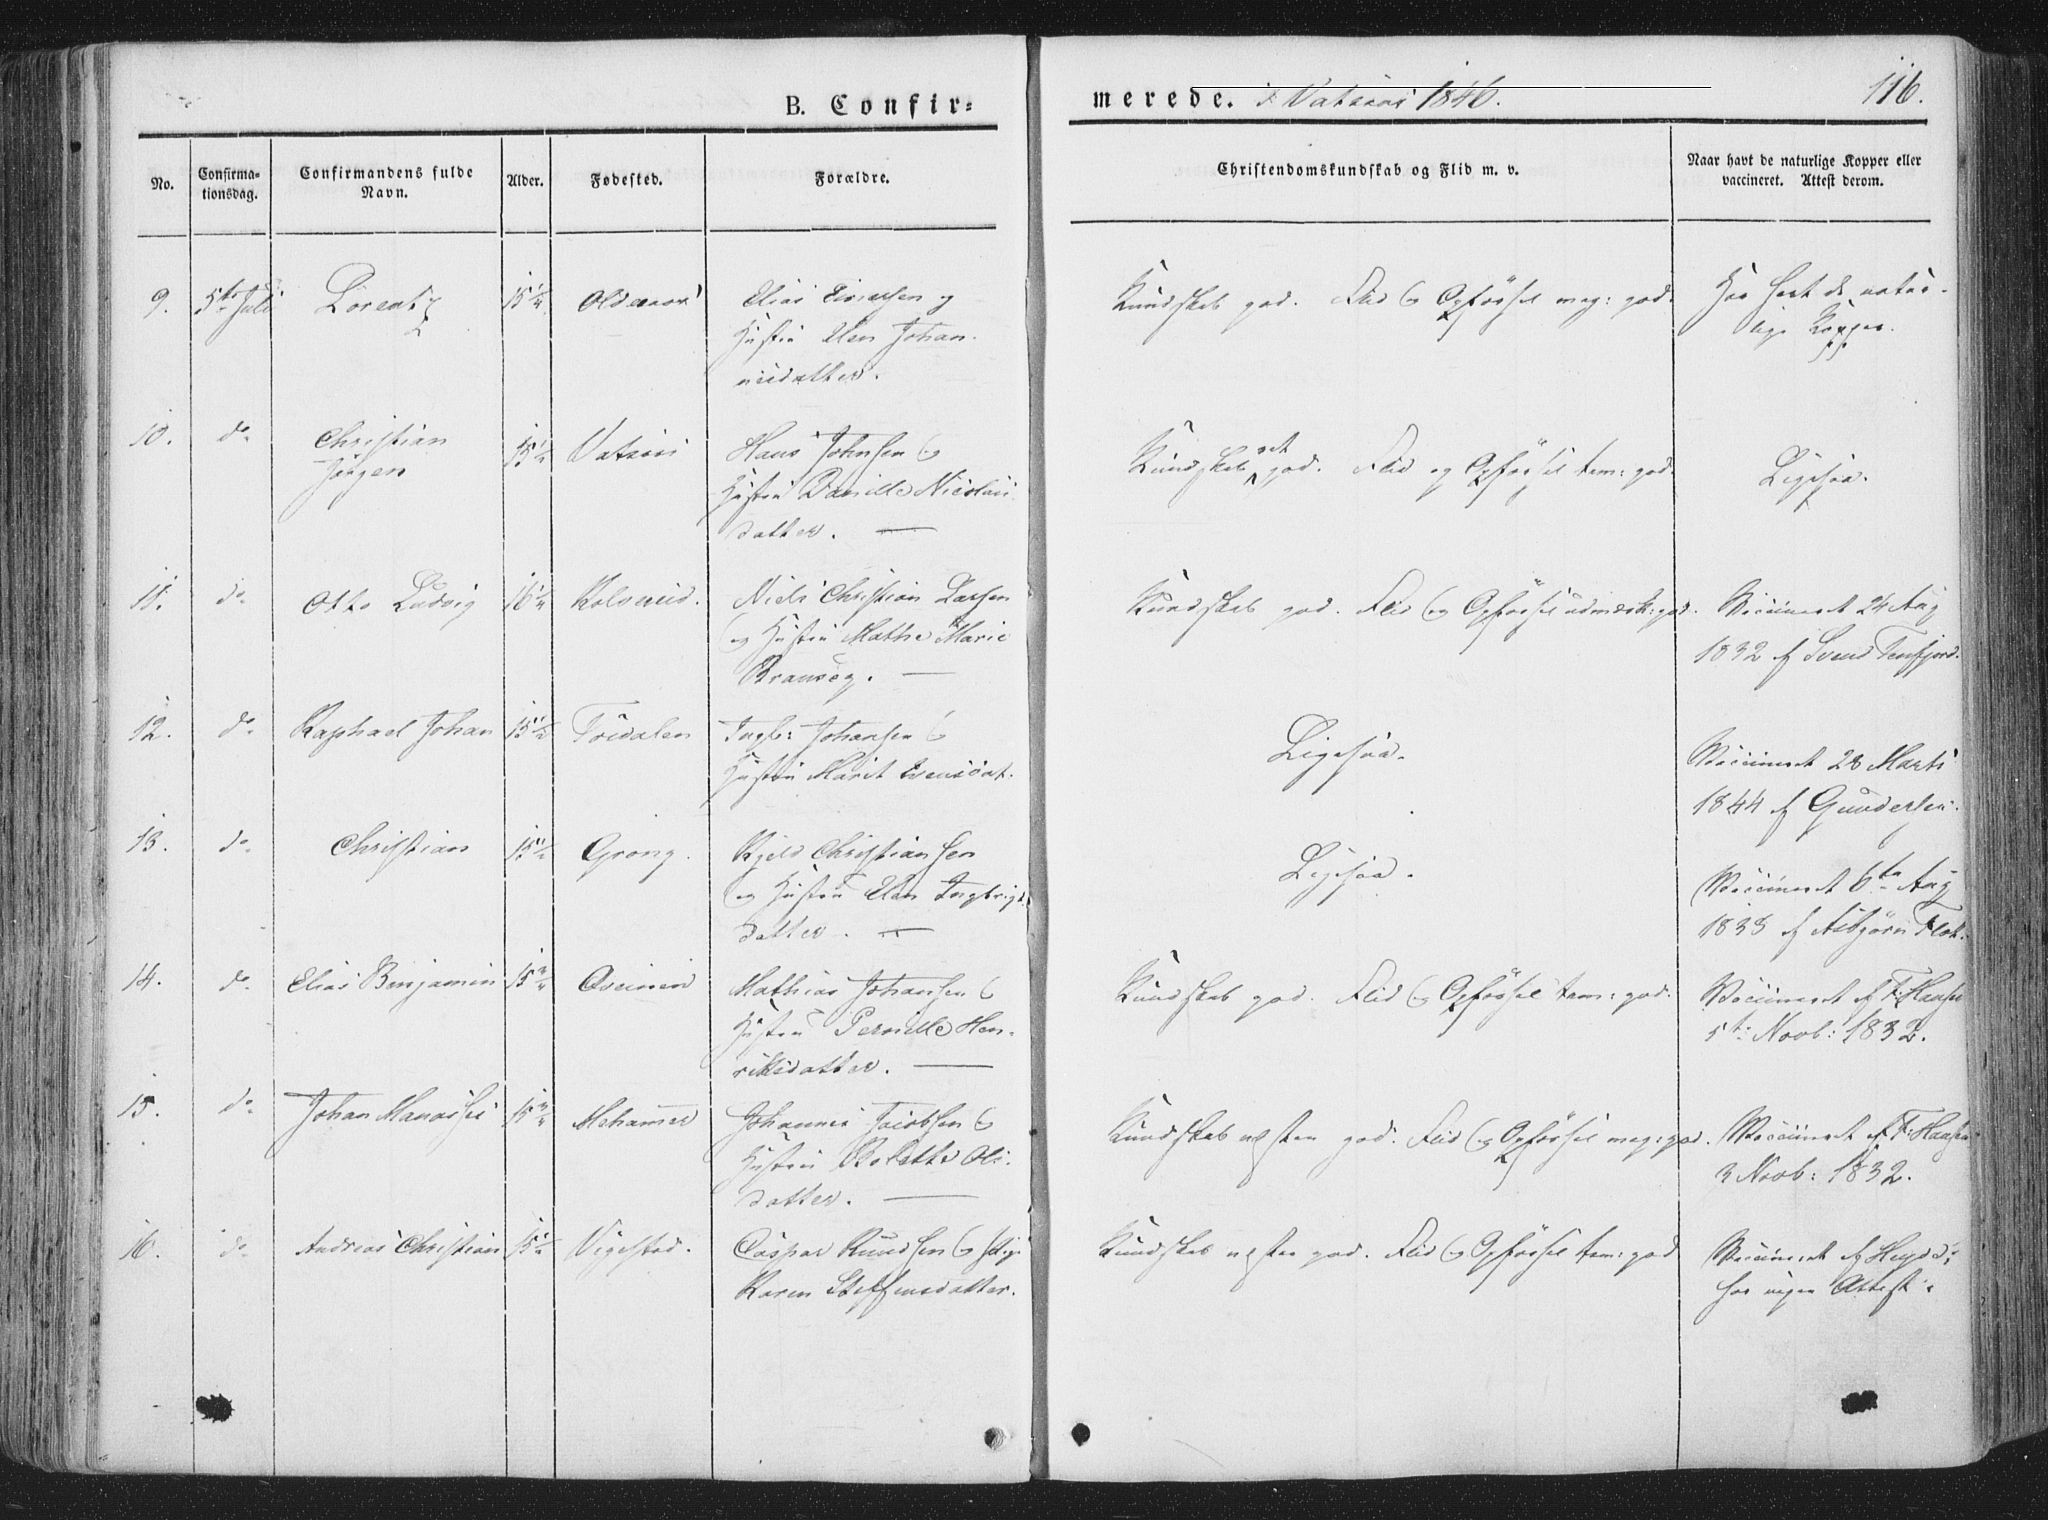 B. Confir-
merede. i 1846.
116.
No.
Confirma-
tionsdag.
Confirmandens fulde
Navn.
Alder.
Fødested.
Forældre.
Christendomskundskab og Flid m. v.
Naar havt de naturlige Kopper eller
vaccineret. Attest derom.
9. 5te Juli Lorentz 15 1/4 Elias og
Hustru Elen Johan-
nesdatter.
Kundskab god. Flid og Opførsel meg: god.
Har havt de natur-
lige Kopper.
10. do Christian
Jørgen
15 1/2 Hans Johnsen og
Hustru Nicolai
datter. —
Kundskab ret god. Flid og Opførsel tem: god.
Ligesaa.
11. do Otto Ludvig 16 1/4 Kolvereid. Niels Christian Larsen
og Hustru Mathe Marie
Kundskab god. Flid og Opførsel udmærk: god.
Vaccineret 24 Aug
1832 af Svend Terfjord.
12. do Raphael Johan 15 1/2 Johansen og
Hustru Marit
Ligesaa.
Vaccineret 28 Marts
1844 af Gundersen.
13. do Christian 15 1/2 Grong. Kjeld Christiansen
og Hustru Elen Ingbrigt
datter. —
Ligesaa.
Vaccineret 6te Aug
1833 af Asbjørn
14. do Elias Benjamin 15 3/4 Mathias Johansen og
Hustru Pernille Hen-
riksdatter. —
Kundskab god. Flid og Opførsel tem: god.
Vaccineret af F: Hansen
5t: Novb: 1832.
15. do Johan Manasses 15 3/4 Johannes Jacobsen og
Hustru Bolette Ols-
datter. —
Kundskab næsten god. Flid og Opførsel meg: god.
Vaccineret af F: Hansen
3 Novb: 1832.
16. do Andreas Christian 15 1/4 Vigestad. Caspar Knudsen og
Karen Steffensdatter.
Kundskab næsten god. Flid og Opførsel tem: god
Vaccineret af
har ingen Attest.